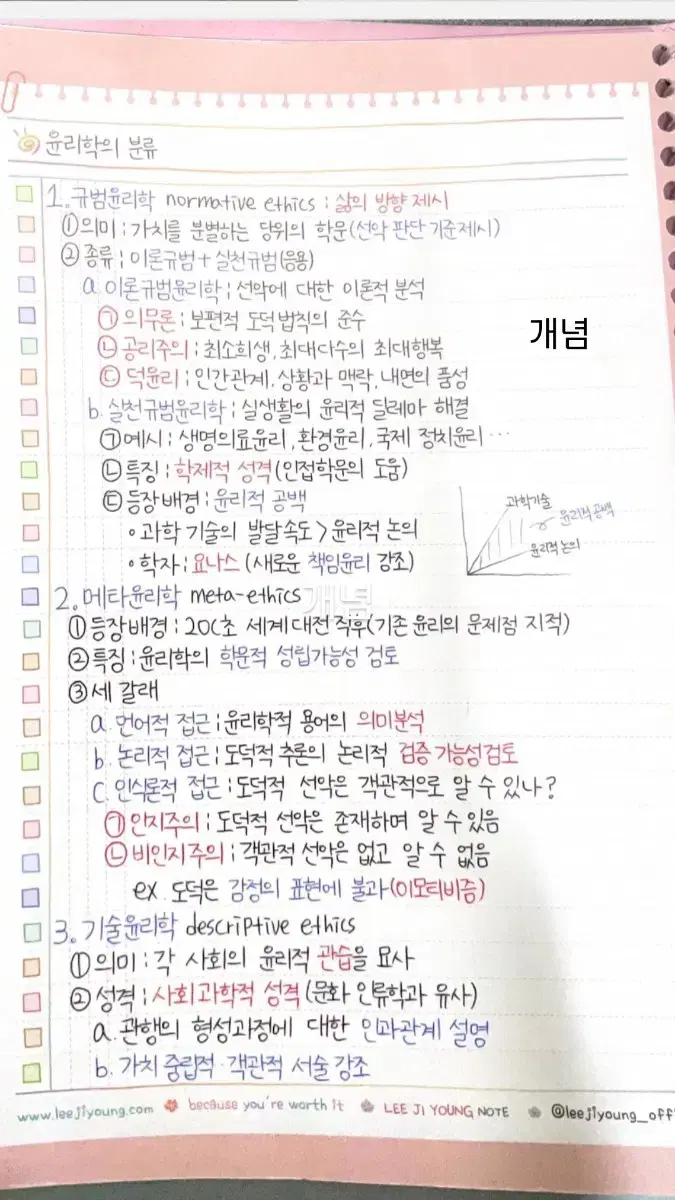 윤리학의 분류
1. 규범윤리학 normative ethics : 삶의 방향 제시
① 의미 : 가치를 분별하는 당위의 학문(선악 판단 기준제시)
② 종류 : 이론규범 + 실천규범(응용)
a. 이론규범윤리학 : 선악에 대한 이론적 분석
㉠ 의무론 : 보편적 도덕법칙의 준수
개념
㉡ 공리주의 : 최소희생, 최대다수의 최대행복
㉢ 덕윤리 : 인간관계, 상황과 맥락, 내면의 품성
b. 실천규범윤리학 : 실생활의 윤리적 딜레마 해결
㉠ 예시 : 생명의료윤리, 환경윤리, 국제 정치윤리…
㉡ 특징 : 학제적 성격(인접학문의 도움)
㉢ 등장 배경 : 윤리적 공백
과학기술
윤리적 공백
• 과학 기술의 발달속도 > 윤리적 논의
윤리적 논의
• 학자 : 요나스 (새로운 책임윤리 강조)
2. 메타윤리학 meta-ethics
개념
① 등장배경 : 20C초 세계대전 직후(기존 윤리의 문제점 지적)
② 특징 : 윤리학의 학문적 성립가능성 검토
③ 세 갈래
a. 언어적 접근 : 윤리학적 용어의 의미분석
b. 논리적 접근 : 도덕적 추론의 논리적 검증 가능성 검토
c. 인식론적 접근 : 도덕적 선악은 객관적으로 알 수 있나?
㉠ 인지주의 : 도덕적 선악은 존재하며 알 수 있음
㉡ 비인지주의 : 객관적 선악은 없고 알 수 없음
ex. 도덕은 감정의 표현에 불과(이모티비즘)
3. 기술윤리학 descriptive ethics
① 의미 : 각 사회의 윤리적 관습을 묘사
② 성격 : 사회과학적 성격(문화 인류학과 유사)
a. 관행의 형성과정에 대한 인과관계 설명
b. 가치 중립적·객관적 서술 강조
www.leejiyoung.com because you're worth it LEE JI YOUNG NOTE @leejiyoung_off